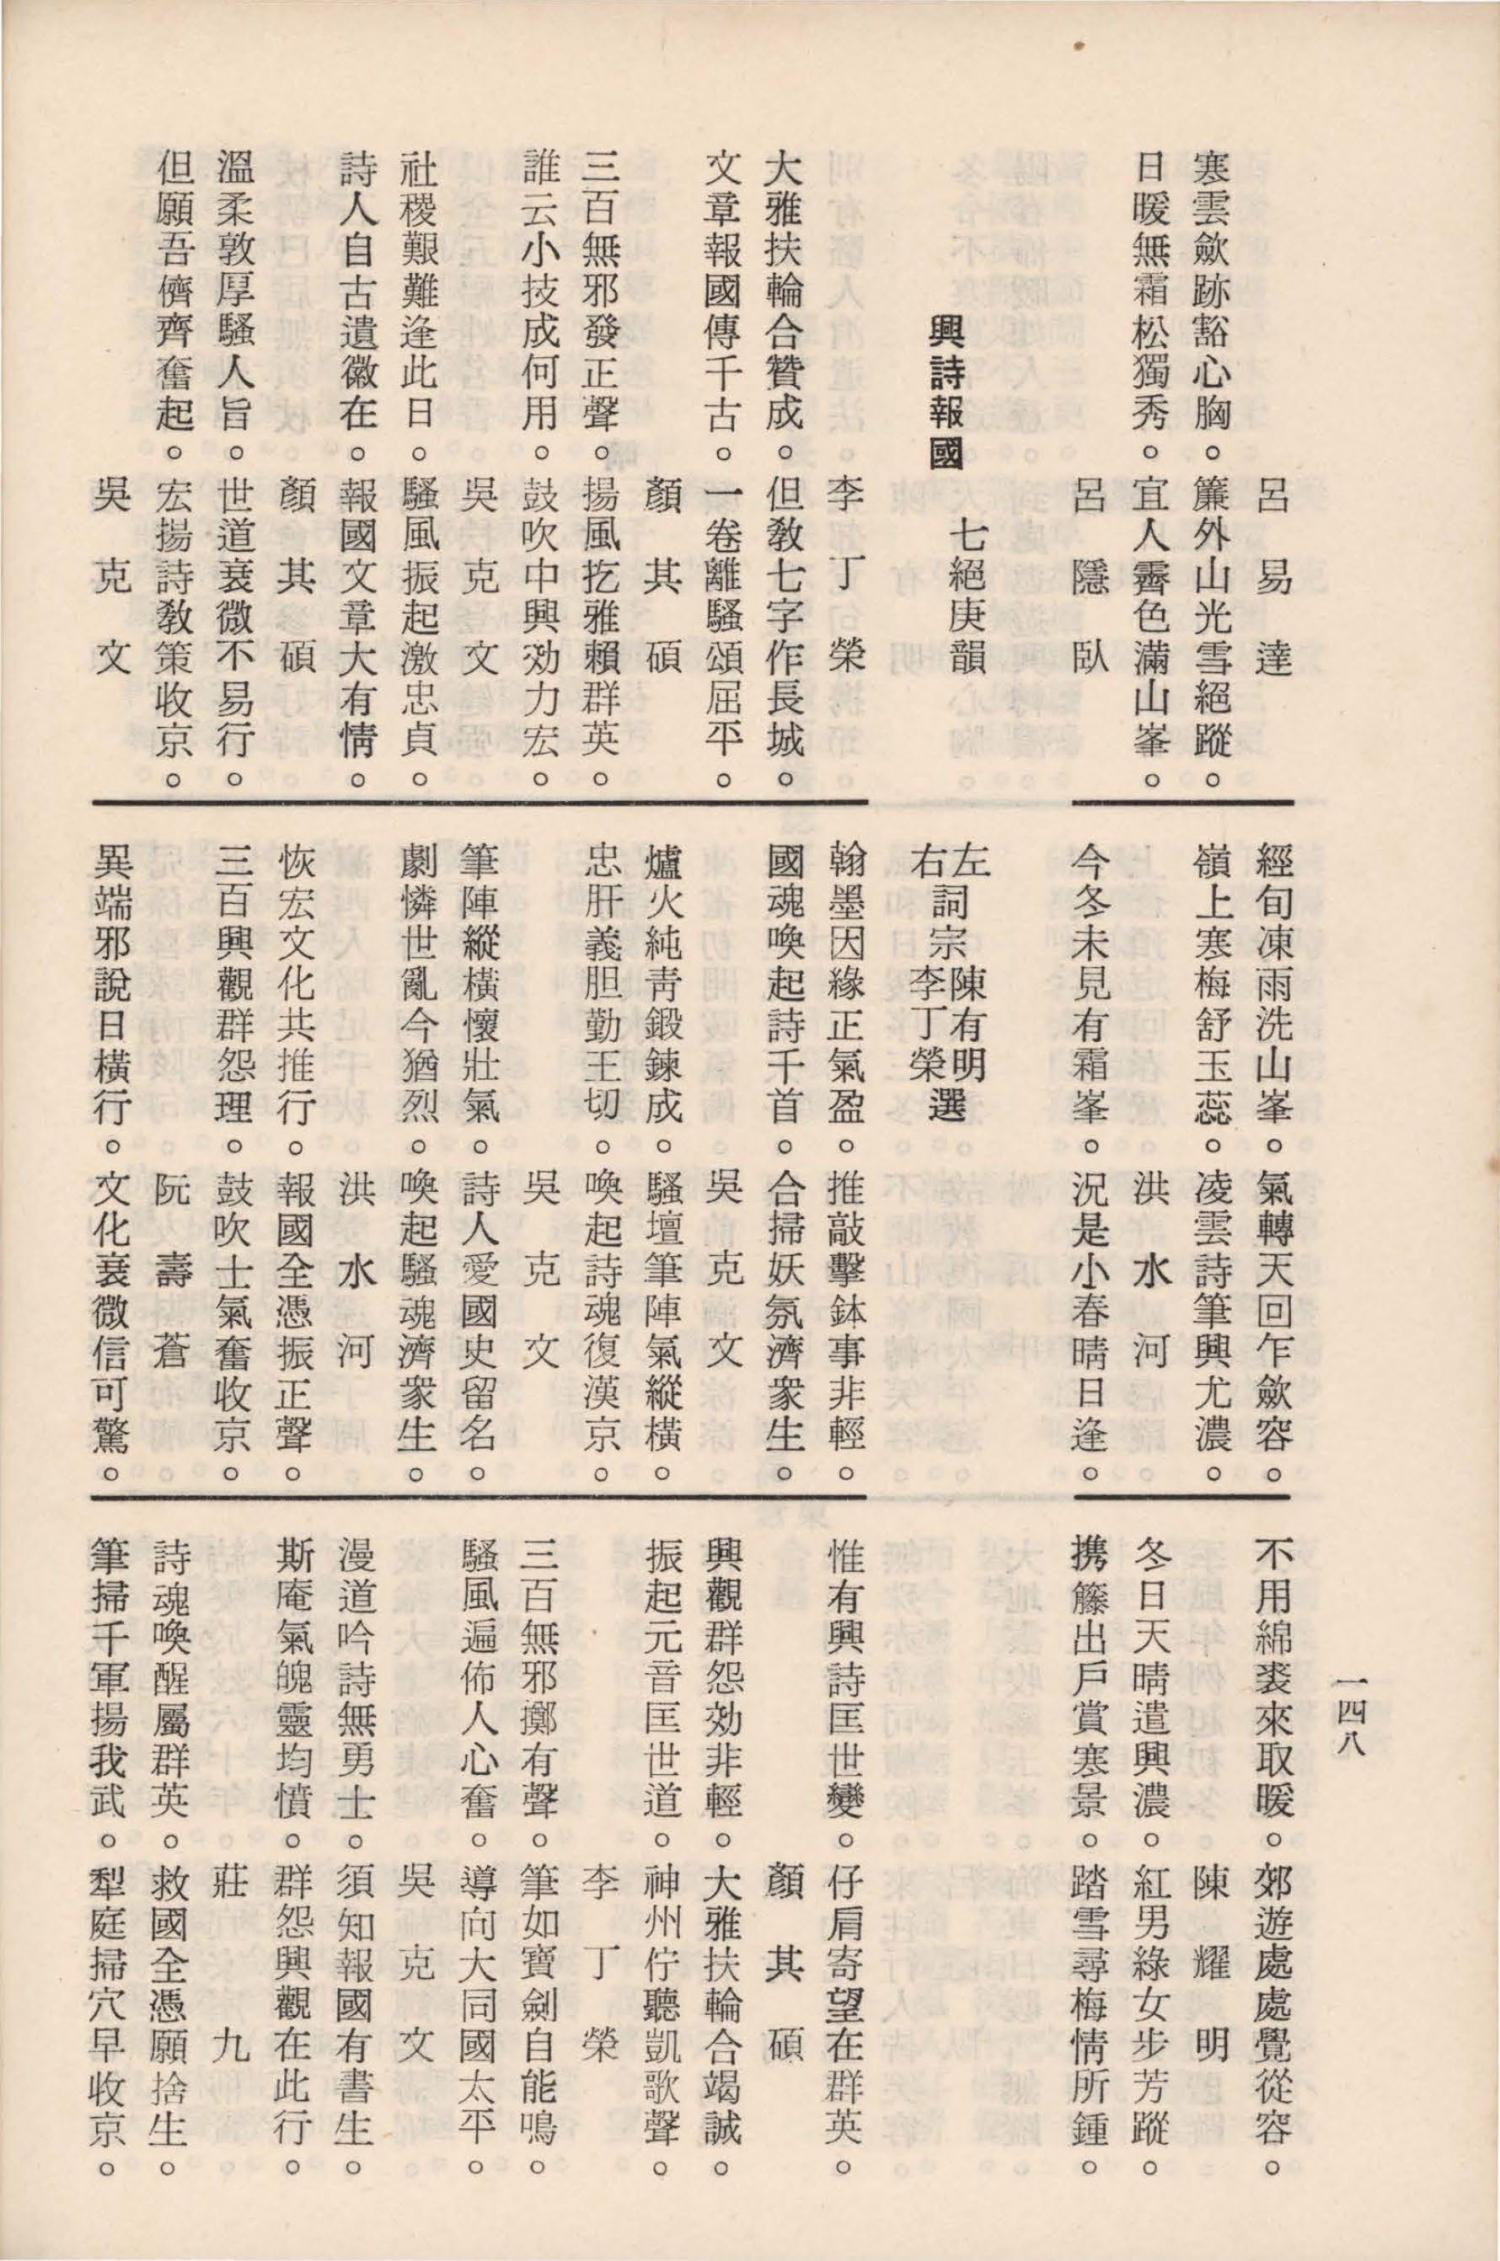 一四八
呂易達
寒雲歛跡豁心胸。簾外山光雪絕蹤。
日暖無霜松獨秀。宜人霽色滿山峯。
呂隱臥
經旬凍雨洗山峯。氣轉天回乍歛容。
嶺上寒梅舒玉蕊。凌雲詩筆興尤濃。
洪水河
今冬未見有霜峯。況是小春晴日逢。
不用綿裘來取暖。郊遊處處覺從容。
陳耀明
冬日天晴遣興濃。紅男綠女步芳蹤。
携籐出戶賞寒景。踏雪尋梅情所鍾。
興詩報國 七絕庚韻 左右詞宗陳有明李丁榮選
李丁榮
大雅扶輪合贊成。但教七字作長城。
文章報國傳千古。一卷離騷頌屈平。
顏其碩
三百無邪發正聲。揚風扢雅賴群英。
誰云小技成何用。鼓吹中興効力宏。
吳克文
社稷艱難逢此日。騷風振起激忠貞。
詩人自古遺徽在。報國文章大有情。
顏其碩
溫柔敦厚騷人旨。世道衰微不易行。
但願吾儕齊奮起。宏揚詩教策收京。
吳克文
翰墨因緣正氣盈。推敲擊鉢事非輕。
國魂喚起詩千首。合掃妖氛濟衆生。
吳克文
爐火純靑鍛鍊成。騷壇筆陣氣縱橫。
忠肝義胆勤王切。喚起詩魂復漢京。
吳克文
筆陣縱橫懷壯氣。詩人愛國史留名。
劇憐世亂今猶烈。喚起騷魂濟衆生。
洪水河
恢宏文化共推行。報國全憑振正聲。
三百興觀群怨理。鼓吹士氣奮收京。
阮壽蒼
異端邪說日橫行。文化衰微信可驚。
惟有興詩匡世變。仔肩寄望在群英。
顏其碩
興觀群怨効非輕。大雅扶輪合竭誠。
振起元音匡世道。神州佇聽凱歌聲。
李丁榮
三百無邪擲有聲。筆如寶劍自能鳴。
騷風遍佈人心奮。導向大同國太平。
吳克文
漫道吟詩無勇士。須知報國有書生。
斯庵氣魄靈均憤。群怨興觀在此行。
莊九
詩魂喚醒屬群英。救國全憑願捨生。
筆掃千軍揚我武。犁庭掃穴早收京。